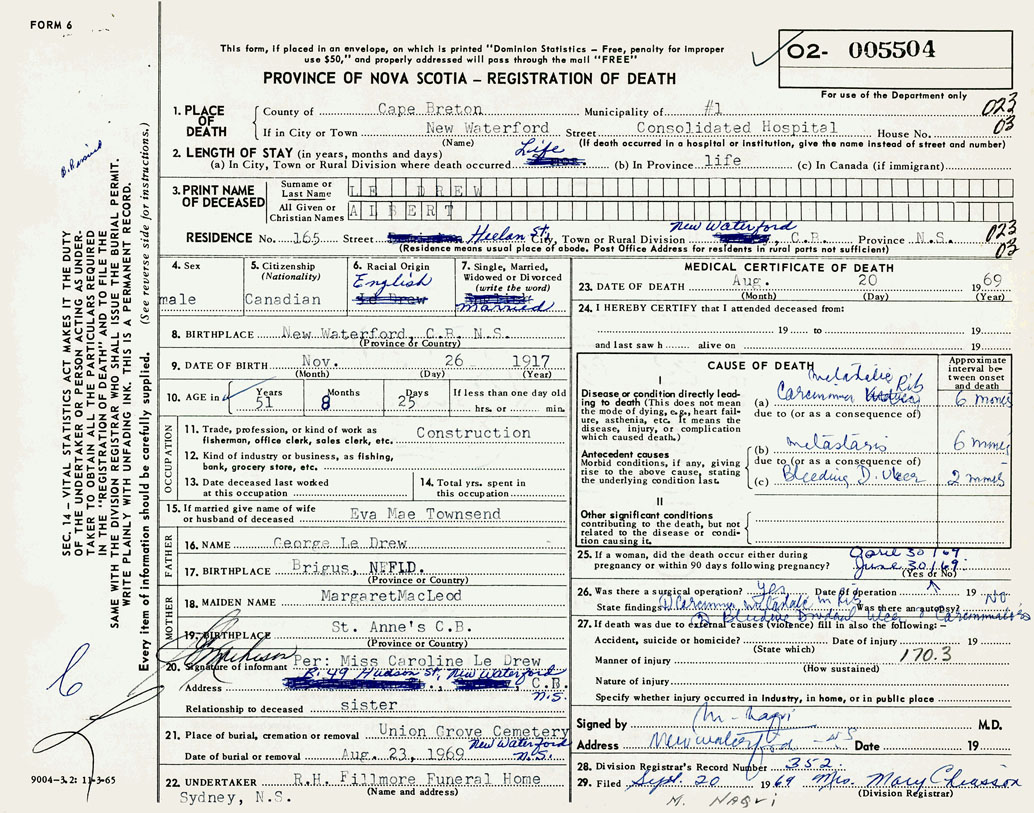 FORM 6
This form, if placed in an envelope, on which is printed "Dominion Statistics – Free, penalty for improper
use $50," and properly addressed will pass through the mail "FREE"
02- 005504
PROVINCE OF NOVA SCOTIA – REGISTRATION OF DEATH
For use of the Department only
1. PLACE OF DEATH
County of Cape Breton Municipality of #1 023
If in City or Town New Waterford Street Consolidated Hospital House No. 03
(Name) (If death occurred in a hospital or institution, give the name instead of street and number)
2. LENGTH OF STAY (in years, months and days) Life
(a) In City, Town or Rural Division where death occurred (b) In Province life (c) In Canada (if immigrant)
3. PRINT NAME OF DECEASED
Surname or Last Name LE DREW
All Given or Christian Names ALBERT
RESIDENCE No. 165 Street Heelan St. City, Town or Rural Division New Waterford, C.B. Province N.S. 023
(Residence means usual place of abode. Post Office Address for residents in rural parts not sufficient) 03
4. Sex male
5. Citizenship (Nationality) Canadian
6. Racial Origin English Le Drew
7. Single, Married, Widowed or Divorced (write the word) married
8. BIRTHPLACE New Waterford, C.B. N.S.
(Province or Country)
9. DATE OF BIRTH Nov. 26 1917
(Month) (Day) (Year)
10. AGE in Years 51 Months 8 Days 25 If less than one day old hrs. or min.
OCCUPATION
11. Trade, profession, or kind of work as fisherman, office clerk, sales clerk, etc. Construction
12. Kind of industry or business, as fishing, bank, grocery store, etc.
13. Date deceased last worked at this occupation
14. Total yrs. spent in this occupation
15. If married give name of wife or husband of deceased Eva Mae Townsend
FATHER
16. NAME George Le Drew
17. BIRTHPLACE Brigus, NFFLD.
(Province or Country)
MOTHER
18. MAIDEN NAME MargaretMacLeod
19. BIRTHPLACE St. Anne's C.B.
(Province or Country)
20. Signature of informant Per: Miss Caroline Le Drew
Address R. 49 Hudson St, New Waterford C.B. N.S.
Relationship to deceased sister
21. Place of burial, cremation or removal Union Grove Cemetery
New Waterford N.S.
Date of burial or removal Aug. 23, 1969
22. UNDERTAKER R.H. Fillmore Funeral Home
Sydney, N.S. (Name and address)
MEDICAL CERTIFICATE OF DEATH
23. DATE OF DEATH Aug. 20 1969
(Month) (Day) (Year)
24. I HEREBY CERTIFY that I attended deceased from:
19 to 19
and last saw h alive on 19
CAUSE OF DEATH
Approximate interval between onset and death
I
Disease or condition directly leading to death (This does not mean the mode of dying, e.g., heart failure, asthenia, etc. It means the disease, injury, or complication which caused death.)
(a) Carcinoma metastatic Rib
due to (or as a consequence of)
Antecedent causes
Morbid conditions, if any, giving rise to the above cause, stating the underlying condition last.
(b) metastasis
due to (or as a consequence of)
(c) Bleeding D. Ulcer
II
Other significant conditions contributing to the death, but not related to the disease or condition causing it.
25. If a woman, did the death occur either during April 30/69.
pregnancy or within 90 days following pregnancy? June 30/69.
(Yes or No)
26. Was there a surgical operation? yes Date of operation 19
State findings 1) Carcinoma metastatic in Rib Was there an autopsy? NO
2) Bleeding Duodenal Ulcer & Carcinomatosis
27. If death was due to external causes (violence) fill in also the following: –
Accident, suicide or homicide? Date of injury 19
(State which)
Manner of injury 170.3
(How sustained)
Nature of injury
Specify whether injury occurred in Industry, in home, or in public place
Signed by M. Naqvi M.D.
Address New waterford NS Date 19
28. Division Registrar's Record Number 352
29. Filed Sept. 20 1969 Mrs. Mary Chiasson
(Division Registrar)
M. NAQVI
SEC. 14 – VITAL STATISTICS ACT MAKES IT THE DUTY
OF THE UNDERTAKER OR PERSON ACTING AS UNDER-
TAKER TO OBTAIN ALL THE PARTICULARS REQUIRED
IN THE "REGISTRATION OF DEATH" AND TO FILE THE
SAME WITH THE DIVISION REGISTRAR WHO SHALL ISSUE THE BURIAL PERMIT.
WRITE PLAINLY WITH UNFADING INK. THIS IS A PERMANENT RECORD.
Every item of information should be carefully supplied. (See reverse side for instructions.)
9004-3.2: 11-3-65